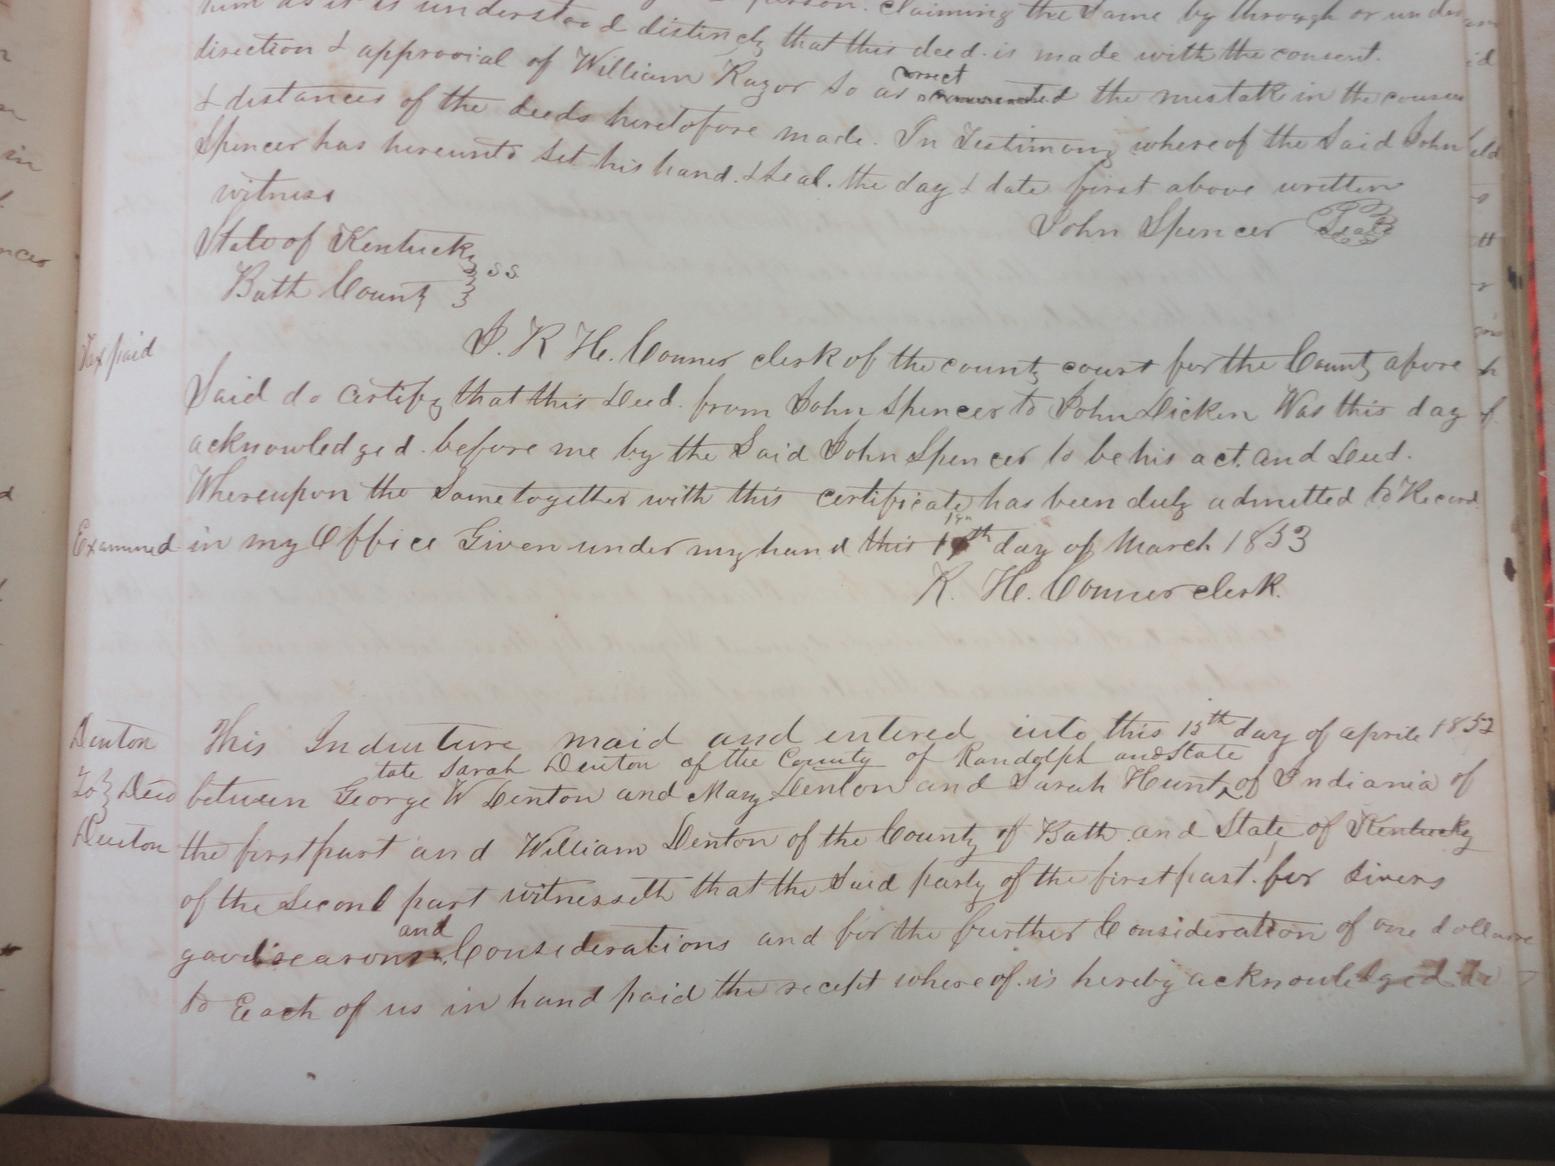 him as it is understood distincly that this deed is made with the consent.
person. Claiming the Same by through or under
direction & approvial of William Razor so as correct the mistak in the courses
& distances of the deeds heretofore made. In Testimony where of the Said John
Spencer has hereunto Set his hand. & Seal. the day & date first above written
witness
John Spencer Seal
State of Kentucky
Bath County SS
Tax paid
I. R H. Conner clerk of the county court for the County afore
Said do certify that this Deed. from John Spencer to John Dicken Was this day
acknowledged. before me by the Said John Spencer to be his act. and Deed.
Whereupon the Same together with this certificate has been duly admitted to Record
Examined in my Office Given under my hand this 19th day of March 1853
R. H. Conner clerk.
Denton
To Deed
Denton
This Indenture maid and entered into this 15th day of aprile 1852
tate Sarah Denton of the County of Randolph and State
between George W Denton and Mary Denton and Sarah Hunt, of Indiania of
the first part and William Denton of the County of Bath and State of Kentucky
of the Second part witnesseth that the Said party of the first part. for Divers
and
good reasons Considerations and for the further Consideration of one dollare
to Each of us in hand paid the recept where of. is hereby acknowledged